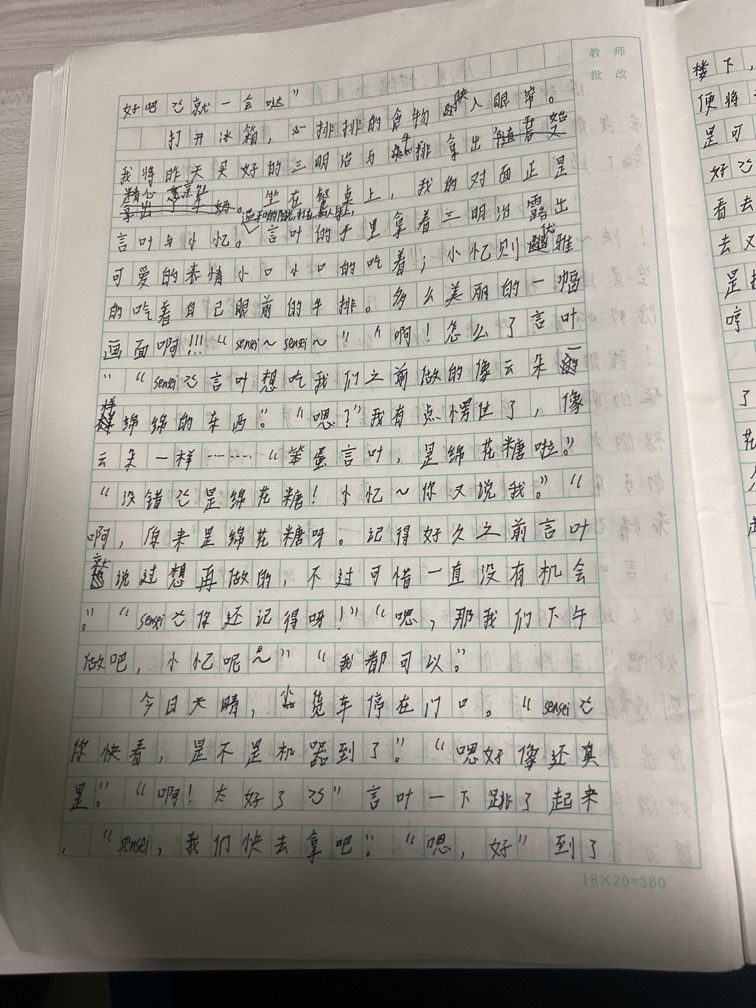 教师
批改
好吧~就一会哒”
打开冰箱，一排排的食物映入眼帘。
我将昨天买好的三明治与牛排拿出
精心
。坐在餐桌上，我的对面正是
言叶与小忆。言叶的手里拿着三明治露出
可爱的表情小口小口的吃着；小忆则优雅
的吃着自己眼前的牛排。多么美丽的一幅
画面啊!!!“sensei～sensei～”“啊！怎么了言叶
”“sensei~言叶想吃我们之前做的像云朵一
样绵绵的东西。”“嗯？”我有点愣住了，像
云朵一样……“笨蛋言叶，是绵花糖啦。”
“没错~是绵花糖！小忆～你又说我。”“
啊，原来是绵花糖呀。记得好久之前言叶
就说过想再做的，不过可惜一直没有机会
。”“sensei~你还记得呀！”“嗯，那我们下午
做吧，小忆呢～”“我都可以。”
今日天晴，货车停在门口。“sensei~
你快看，是不是机器到了。”“嗯好像还真
是。”“啊！太好了~”言叶一下跳了起来
．“sensei，我们快去拿吧。”“嗯，好”到了
18×20=360
楼下，
便将
是可
好~
看去
去又
是
哼
了
花